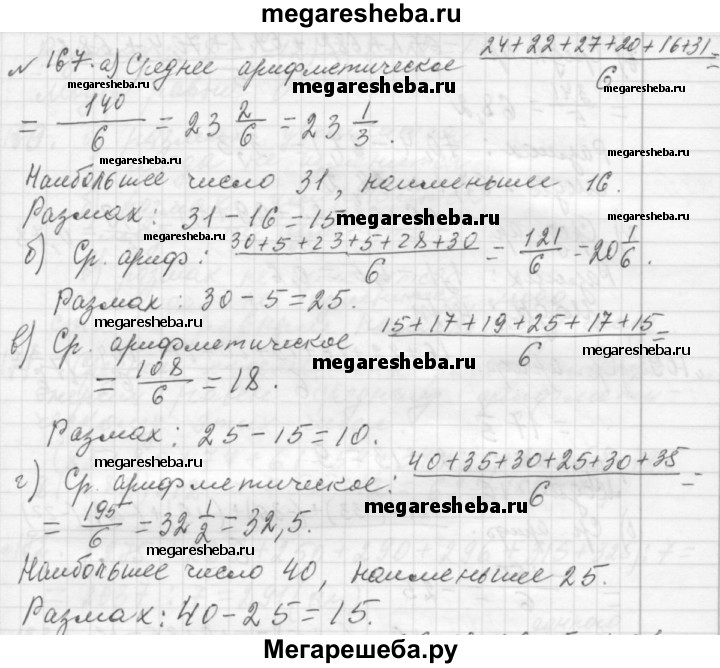 megaresheba.ru
№ 167. а) Среднее арифметическое (24+22+27+20+16+31)/6 =
= 140/6 = 23 2/6 = 23 1/3.
megaresheba.ru megaresheba.ru
megaresheba.ru megaresheba.ru
Наибольшее число 31, наименьшее 16.
Размах: 31-16=15
megaresheba.ru
megaresheba.ru
б) Ср. ариф: (30+5+23+5+28+30)/6 = 121/6 = 20 1/6.
Размах: 30-5=25.
megaresheba.ru megaresheba.ru
в) Ср. арифметическое (15+17+19+25+17+15)/6 =
megaresheba.ru megaresheba.ru megaresheba.ru
= 108/6 = 18.
Размах: 25-15=10.
megaresheba.ru
г) Ср. арифметическое: (40+35+30+25+30+35)/6 =
megaresheba.ru megaresheba.ru
= 195/6 = 32 1/2 = 32,5.
megaresheba.ru
Наибольшее число 40, наименьшее 25.
megaresheba.ru
Размах: 40-25=15.
Мегарешеба.ру